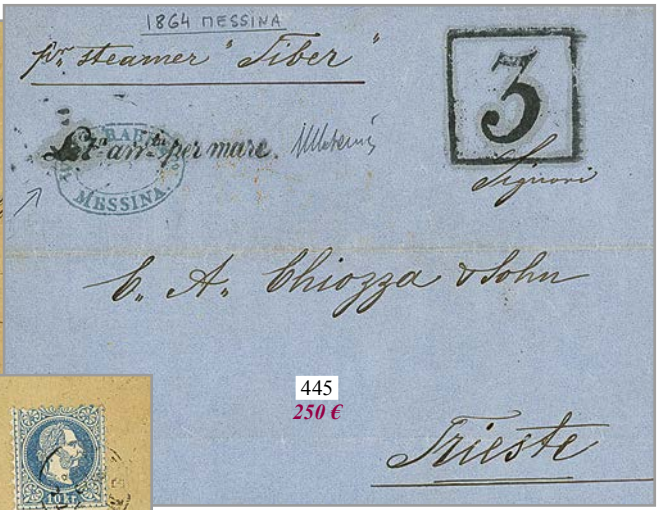 1864 MESSINA
pr. steamer "Tiber"
3
Lra. arrta. per mare.
MESSINA.
Signori
C. A. Chiozza & Sohn
445
250 €
Trieste
10 kr.